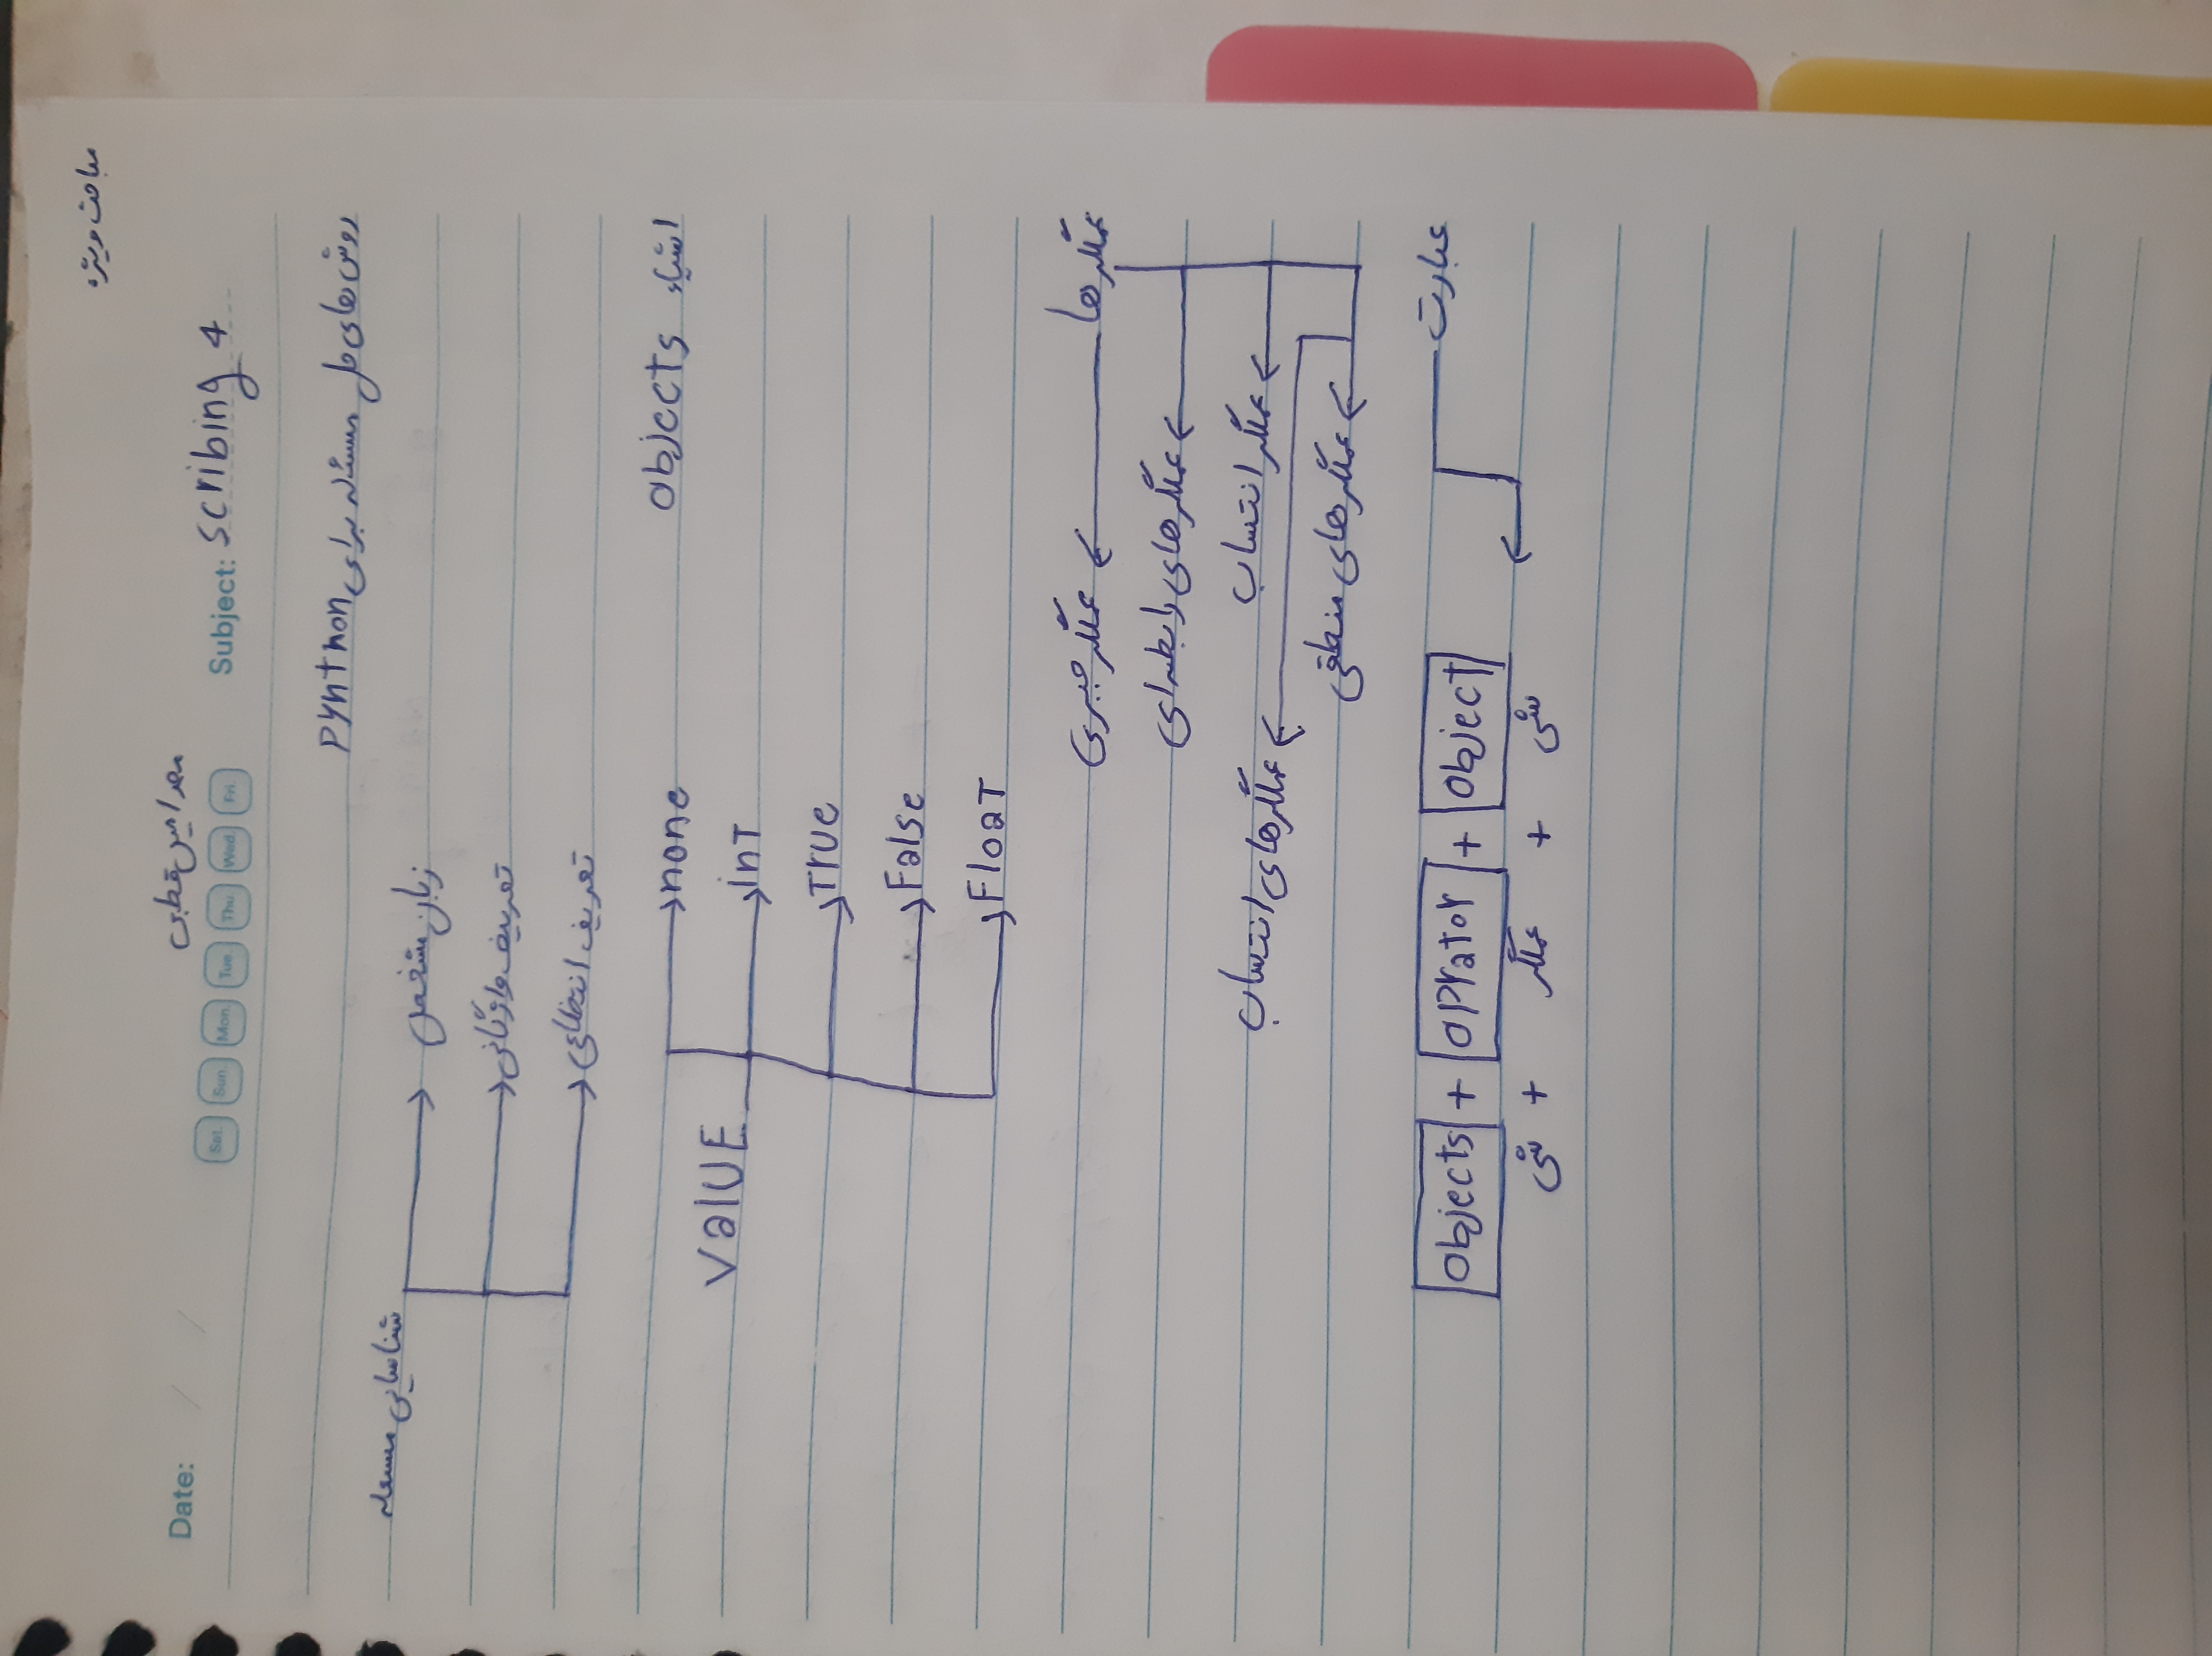 مباحث ویژه
Date: / /
محمد امین قطبی
Sat. Sun. Mon. Tue. Thu. Wed. Fri.
Subject: scribing 4
روش های حل مسئله برای pynthon
شناسایی مسعله
زبان مشخص
تعریف واژگانی
تعریف انتظاعی
اشیاء objects
value
none
int
True
False
Float
عملگرها ← عملگر جبری
عملگرهای رابطه ای
عملگر انتساب
عملگرهای انتساب
عملگرهای منطقی
عبارت
objects + oprator + object
شی + عملگر + شی